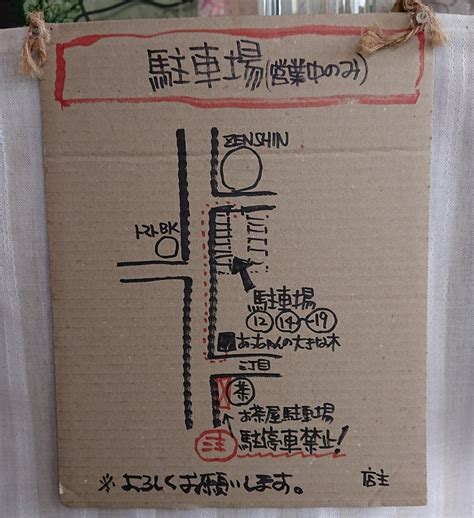 駐車場(営業中のみ)
ZENSHIN
トマトBK
駐車場
⑫ ⑭〜⑲
あっちゃんの大すきな木
二丁目
茶
お茶屋駐車場
注 駐停車禁止!
※よろしくお願いします。 店主